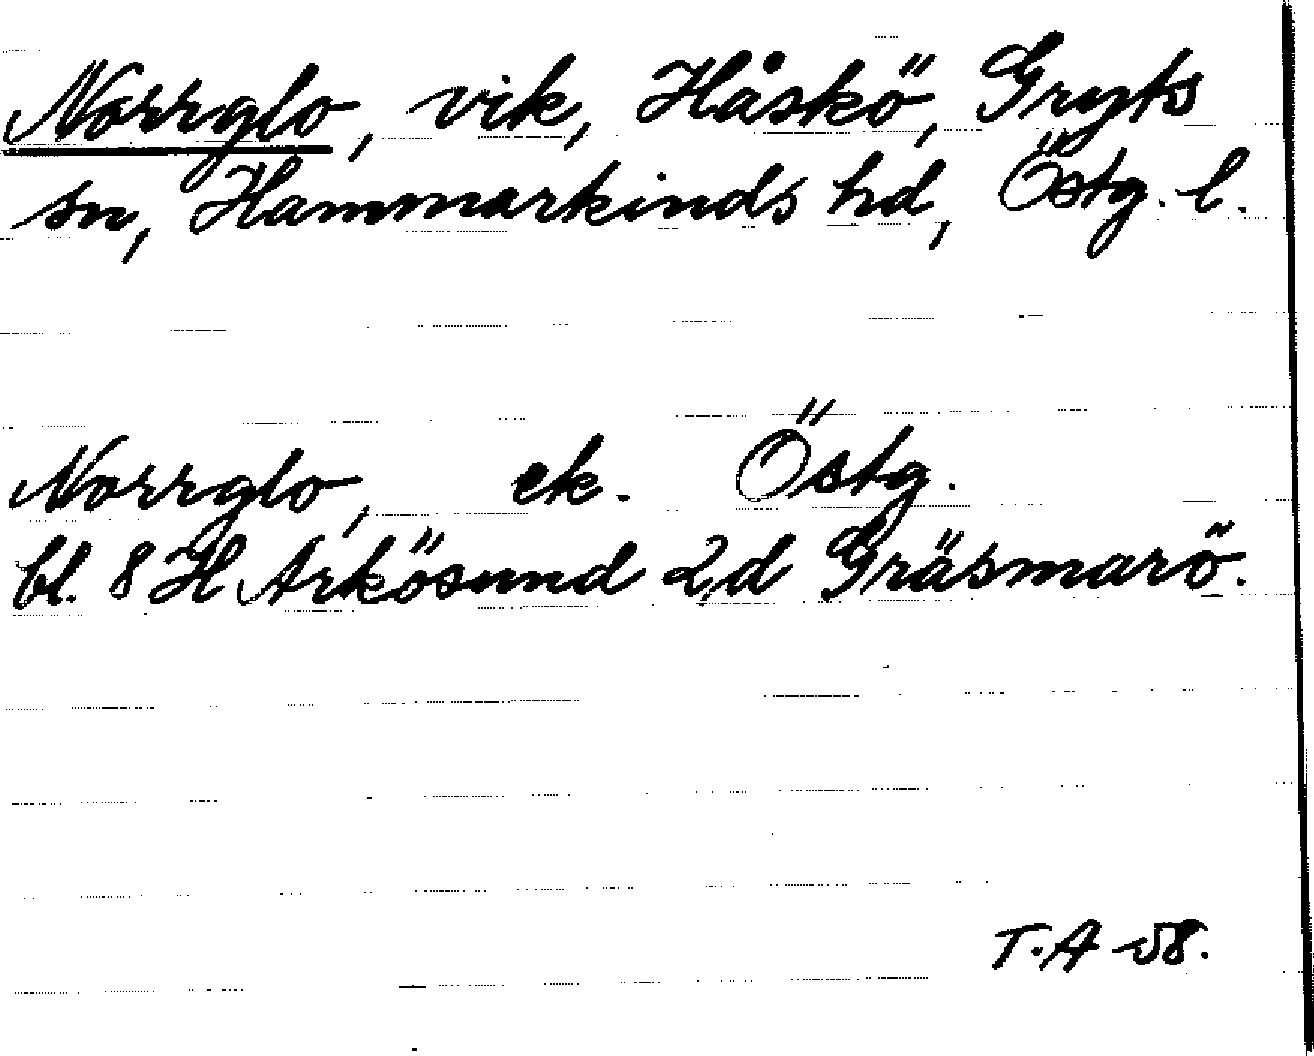 Norrglo, vik, Håskö, Gryts
sn, Hammarkinds hd, Östg. l.
Norrglo, ek. Östg.
bl. 8 H Arkösund 2d Gräsmarö.
T.A -58.